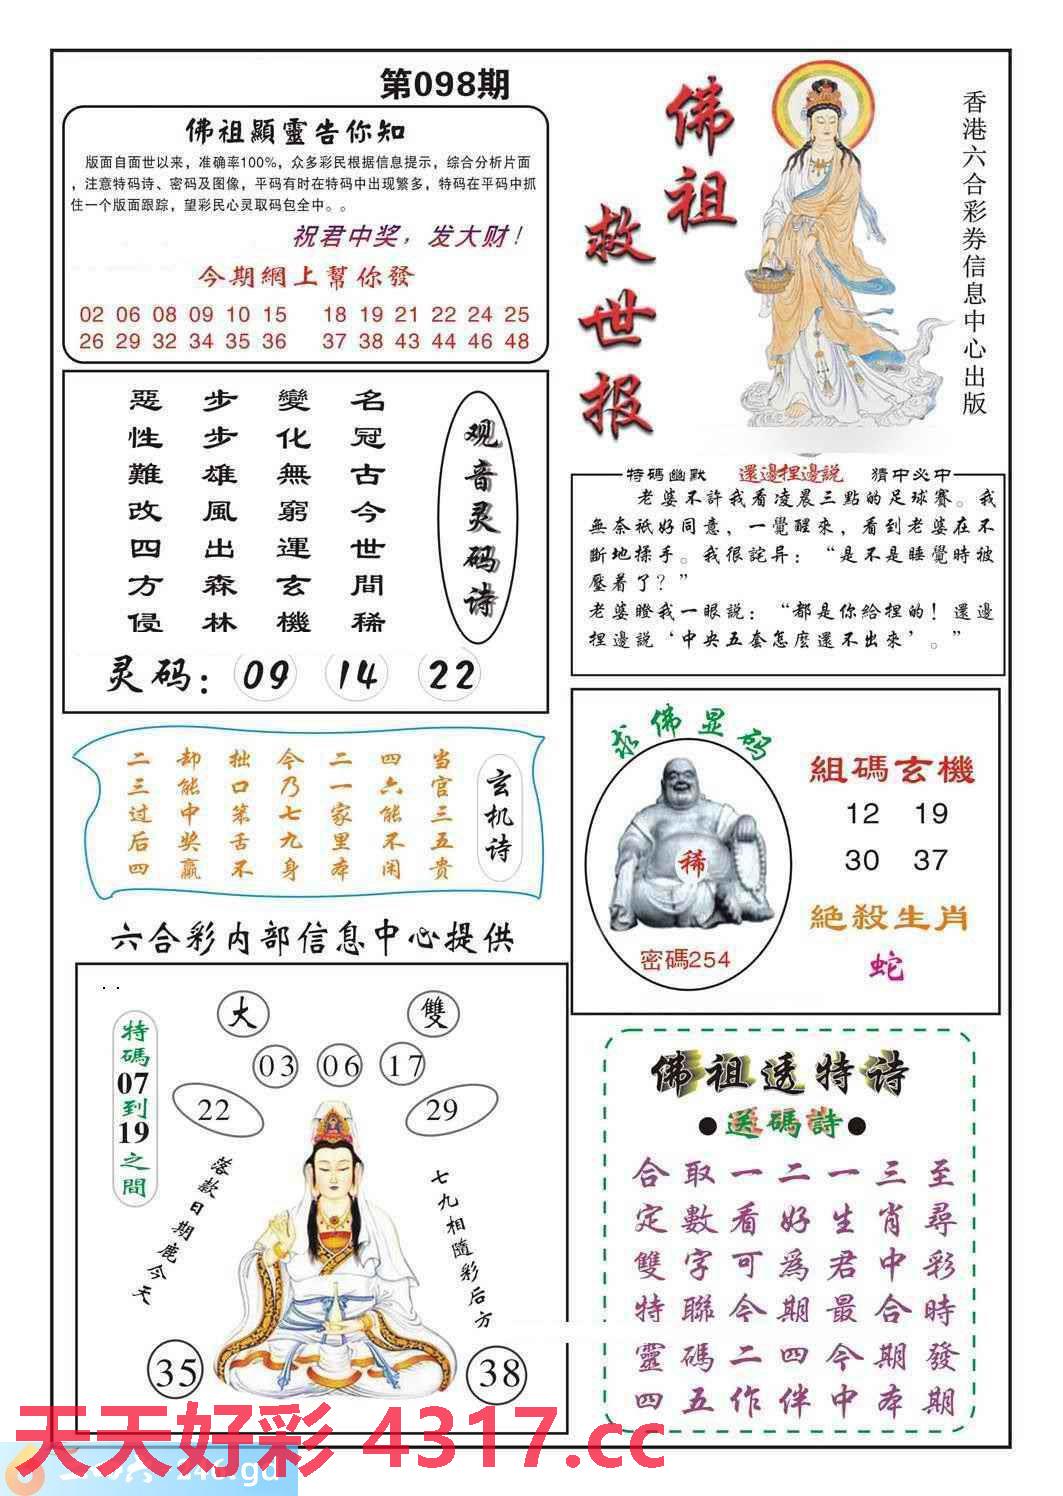 第098期
佛祖顯靈告你知
版面自面世以来，准确率100%，众多彩民根据信息提示，综合分析片面
，注意特码诗、密码及图像，平码有时在特码中出现繁多，特码在平码中抓
住一个版面跟踪，望彩民心灵取码包全中。。
祝君中奖，发大财！
今期網上幫你發
02 06 08 09 10 15 18 19 21 22 24 25
26 29 32 34 35 36 37 38 43 44 46 48
佛祖
救世报
香港六合彩券信息中心出版
观音灵码诗
名冠古今世間稀
變化無窮運玄機
步步雄風出森林
惡性難改四方侵
灵码：09 14 22
特碼幽默 還邊捏邊説 猜中必中
老婆不許我看凌晨三點的足球賽。我
無奈祇好同意，一覺醒來，看到老婆在不
斷地揉手。我很詫异：“是不是睡覺時被
壓着了？”
老婆瞪我一眼説：“都是你給捏的！還邊
捏邊説‘中央五套怎麽還不出來’。”
玄机诗
当官三五贵
四六能不闲
二一家里本
今乃七九身
拙口笨舌不
却能中奖赢
二三过后四
求佛显码
稀
密碼254
組碼玄機
12 19
30 37
絶殺生肖
蛇
六合彩内部信息中心提供
特碼07到19之間
大
雙
03 06 17
22
29
落款日期鹿今天
七九相隨彩后方
35
38
佛祖透特诗
●送碼詩●
至尋彩時發期
三肖中合期本
一生君最今中
二好爲期四伴
一看可今二作
取數字聯碼五
合定雙特靈四
天天好彩 4317.cc
246.gd